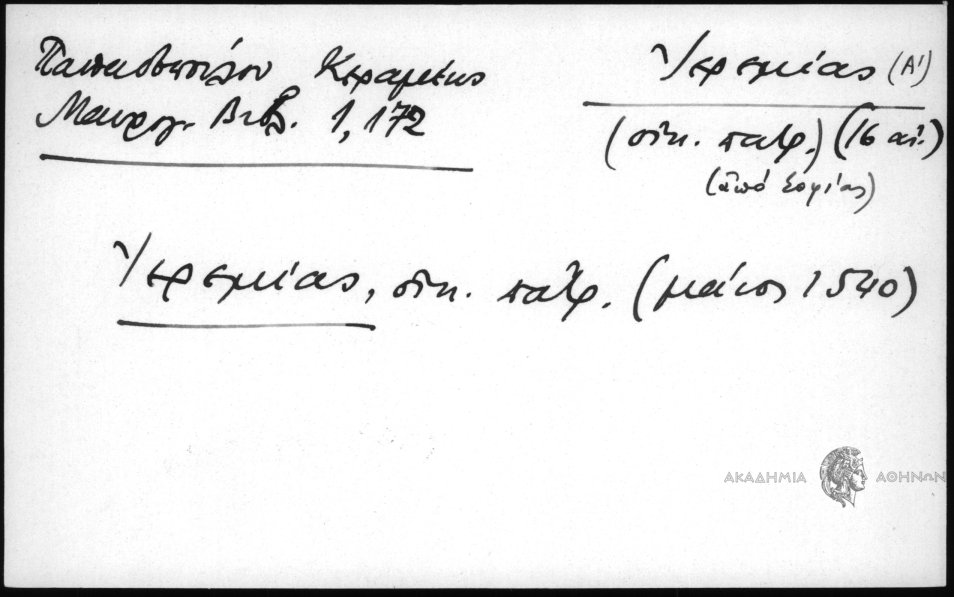 Παπαδοπούλου Κεραμέως
Μαυρογ. Βιβλ. 1,172
Ἱερεμίας (Α')
(οἰκ. πατρ.) (16 αἰ.)
(ἀπό Σοφίας)
Ἱερεμίας, οἰκ. πατρ. (μάιος 1540)
ΑΚΑΔΗΜΙΑ ΑΘΗΝΩΝ